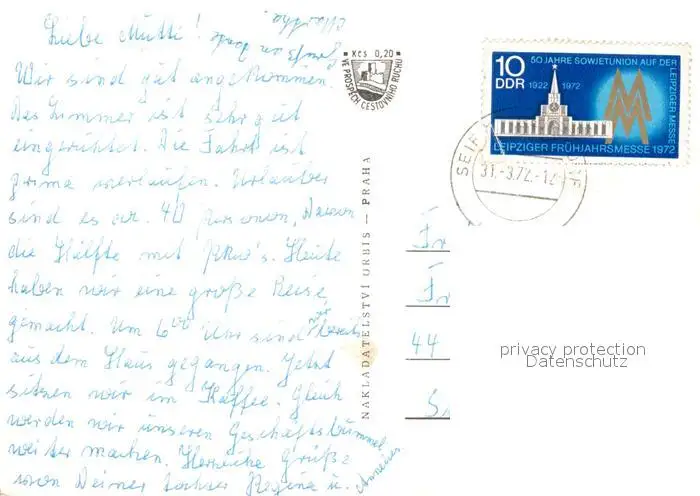 Liebe Mutti!
Wir sind gut angekommen.
Das Zimmer ist sehr gut
eingerichtet. Die Fahrt ist
prima verlaufen. Urlauber
sind es ca. 40 Personen, davon
die Hälfte mit PKW's. Heute
haben wir eine große Reise
gemacht. Um 6ºº Uhr sind wir bereits
aus dem Haus gegangen. Jetzt
sitzen wir im Kaffee. Gleich
werden wir unseren Geschäftsbummel
weiter machen. Herzliche Grüße
von Deiner Tochter Regina u.
Gruß an beide
Kčs 0,20
VE PROSPĚCH CESTOVNÍHO RUCHU
NAKLADATELSTVÍ ORBIS — PRAHA
50 JAHRE SOWJETUNION AUF DER LEIPZIGER MESSE
10
DDR
1922 1972
MM
LEIPZIGER FRÜHJAHRSMESSE 1972
SEIF
31.-3.72.-12
Fr
44
privacy protection
Datenschutz